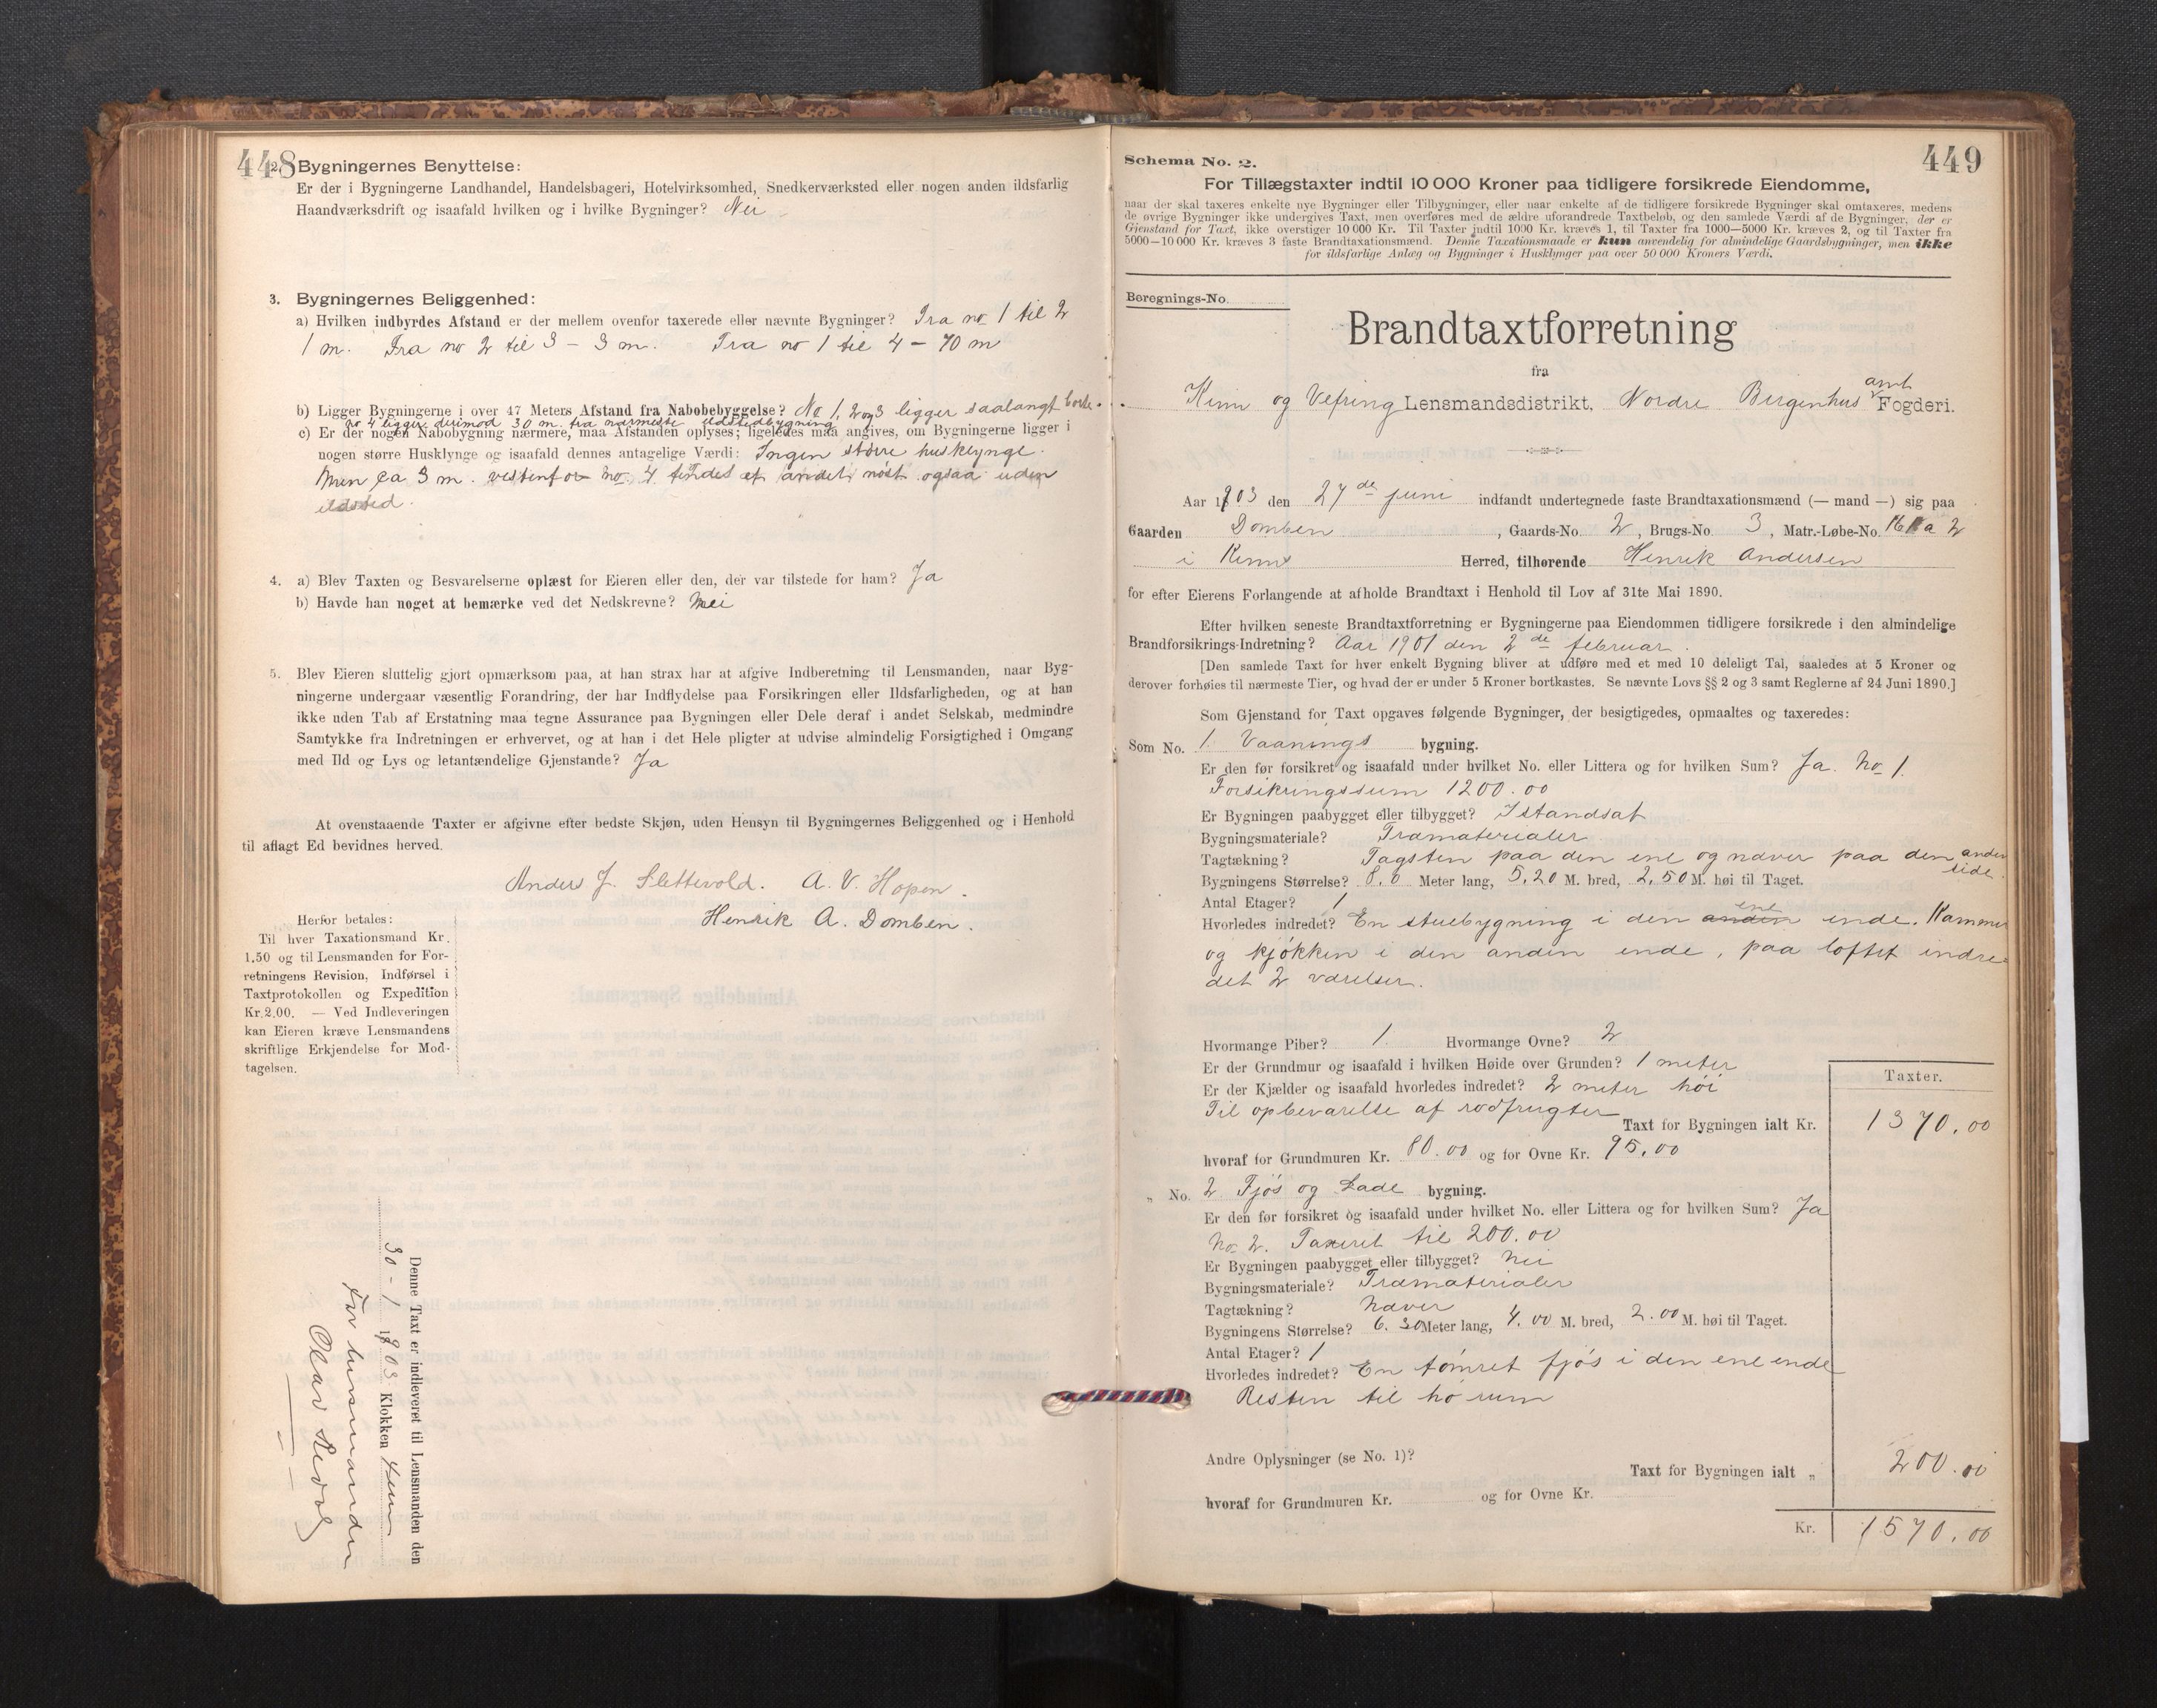 448
2. Bygningernes Benyttelse:
Er der i Bygningerne Landhandel, Handelsbageri, Hotelvirksomhed, Snedkerværksted eller nogen anden ildsfarlig
Haandværksdrift og isaafald hvilken og i hvilke Bygninger? Nei
3. Bygningernes Beliggenhed:
a) Hvilken indbyrdes Afstand er der mellem ovenfor taxerede eller nævnte Bygninger? Fra no 1 til 2
1 m. Fra no 2 til 3 – 3 m. Fra no 1 til 4 – 70 m
b) Ligger Bygningerne i over 47 Meters Afstand fra Nabobebyggelse? No 1, 2 og 3 ligger saalangt borte.
no 4 ligger derimod 30 m. fra nærmeste ildstedbygning
c) Er der nogen Nabobygning nærmere, maa Afstanden oplyses; ligeledes maa angives, om Bygningerne ligger i
nogen større Husklynge og isaafald dennes antagelige Værdi: Ingen større husklynge.
Men ca 3 m. vestenfor no. 4 findes et andet nøst ogsaa uden
ildsted.
4. a) Blev Taxten og Besvarelserne oplæst for Eieren eller den, der var tilstede for ham? Ja
b) Havde han noget at bemærke ved det Nedskrevne? Nei
5. Blev Eieren sluttelig gjort opmærksom paa, at han strax har at afgive Indberetning til Lensmanden, naar Byg-
ningerne undergaar væsentlig Forandring, der har Indflydelse paa Forsikringen eller Ildsfarligheden, og at han
ikke uden Tab af Erstatning maa tegne Assurance paa Bygningen eller Dele deraf i andet Selskab, medmindre
Samtykke fra Indretningen er erhvervet, og at han i det Hele pligter at udvise almindelig Forsigtighed i Omgang
med Ild og Lys og letantændelige Gjenstande? Ja
At ovenstaaende Taxter er afgivne efter bedste Skjøn, uden Hensyn til Bygningernes Beliggenhed og i Henhold
til aflagt Ed bevidnes herved.
Anders J. Slettevold. A. V. Hopen.
Henrik A. Domben.
Herfor betales:
Til hver Taxationsmand Kr.
1.50 og til Lensmanden for For-
retningens Revision, Indførsel i
Taxtprotokollen og Expedition
Kr. 2.00. — Ved Indleveringen
kan Eieren kræve Lensmandens
skriftlige Erkjendelse for Mod-
tagelsen.
Denne Taxt er indleveret til Lensmanden den
30 – 1 1903 Klokken
For lensmanden
Olav
449
Schema No. 2.
For Tillægstaxter indtil 10 000 Kroner paa tidligere forsikrede Eiendomme,
naar der skal taxeres enkelte nye Bygninger eller Tilbygninger, eller naar enkelte af de tidligere forsikrede Bygninger skal omtaxeres, medens
de øvrige Bygninger ikke undergives Taxt, men overføres med de ældre uforandrede Taxtbeløb, og den samlede Værdi af de Bygninger, der er
Gjenstand for Taxt, ikke overstiger 10 000 Kr. Til Taxter indtil 1000 Kr. kræves 1, til Taxter fra 1000—5000 Kr. kræves 2, og til Taxter fra
5000—10 000 Kr. kræves 3 faste Brandtaxationsmænd. Denne Taxationsmaade er kun anvendelig for almindelige Gaardsbygninger, men ikke
for ildsfarlige Anlæg og Bygninger i Husklynger paa over 50 000 Kroners Værdi.
Beregnings-No.
Brandtaxtforretning
fra
Kinn og Vefring Lensmandsdistrikt, Nordre Bergenhus amt Fogderi.
Aar 1903 den 27de juni indfandt undertegnede faste Brandtaxationsmænd (— mand —) sig paa
Gaarden Domben, Gaards-No. 2, Brugs-No. 3, Matr.-Løbe-No. 16 a 2
i Kinn Herred, tilhørende Henrik Andersen
for efter Eierens Forlangende at afholde Brandtaxt i Henhold til Lov af 31te Mai 1890.
Efter hvilken seneste Brandtaxtforretning er Bygningerne paa Eiendommen tidligere forsikrede i den almindelige
Brandforsikrings-Indretning? Aar 1901 den 2de februar.
[Den samlede Taxt for hver enkelt Bygning bliver at udføre med et med 10 deleligt Tal, saaledes at 5 Kroner og
derover forhøies til nærmeste Tier, og hvad der er under 5 Kroner bortkastes. Se nævnte Lovs §§ 2 og 3 samt Reglerne af 24 Juni 1890.]
Som Gjenstand for Taxt opgaves følgende Bygninger, der besigtigedes, opmaaltes og taxeredes:
Som No. 1. Vaanings bygning.
Er den før forsikret og isaafald under hvilket No. eller Littera og for hvilken Sum? Ja. No 1.
Forsikringssum 1200.00
Er Bygningen paabygget eller tilbygget? Istandsat
Bygningsmateriale? Træmaterialer
Tagtækning? Tagsten paa den ene og næver paa den anden side.
Bygningens Størrelse? 8.0 Meter lang, 5,20 M. bred, 2,50 M. høi til Taget.
Antal Etager? 1
Hvorledes indredet? En stuebygning i den anden ene ende. Kammer
og kjøkken i den anden ende, paa loftet indre=
det 2 værelser.
Hvormange Piber? 1. Hvormange Ovne? 2
Er der Grundmur og isaafald i hvilken Høide over Grunden? 1 meter
Er der Kjælder og isaafald hvorledes indredet? 2 meter høi
Til opbevarelse af rodfrugter
Taxter.
Taxt for Bygningen ialt Kr. 1370.00
hvoraf for Grundmuren Kr. 80.00 og for Ovne Kr. 95.00
„ No. 2 Fjøs og Lade bygning.
Er den før forsikret og isaafald under hvilket No. eller Littera og for hvilken Sum? Ja
No 2. Taxeret til 200.00
Er Bygningen paabygget eller tilbygget? Nei
Bygningsmateriale? Træmaterialer
Tagtækning? Næver
Bygningens Størrelse? 6.30 Meter lang, 4.00 M. bred, 2.00 M. høi til Taget.
Antal Etager? 1
Hvorledes indredet? En tømret fjøs i den ene ende
Resten til hø rum
Andre Oplysninger (se No. 1)?
Taxt for Bygningen ialt „ 200.00
hvoraf for Grundmuren Kr. og for Ovne Kr.
Kr. 1570.00